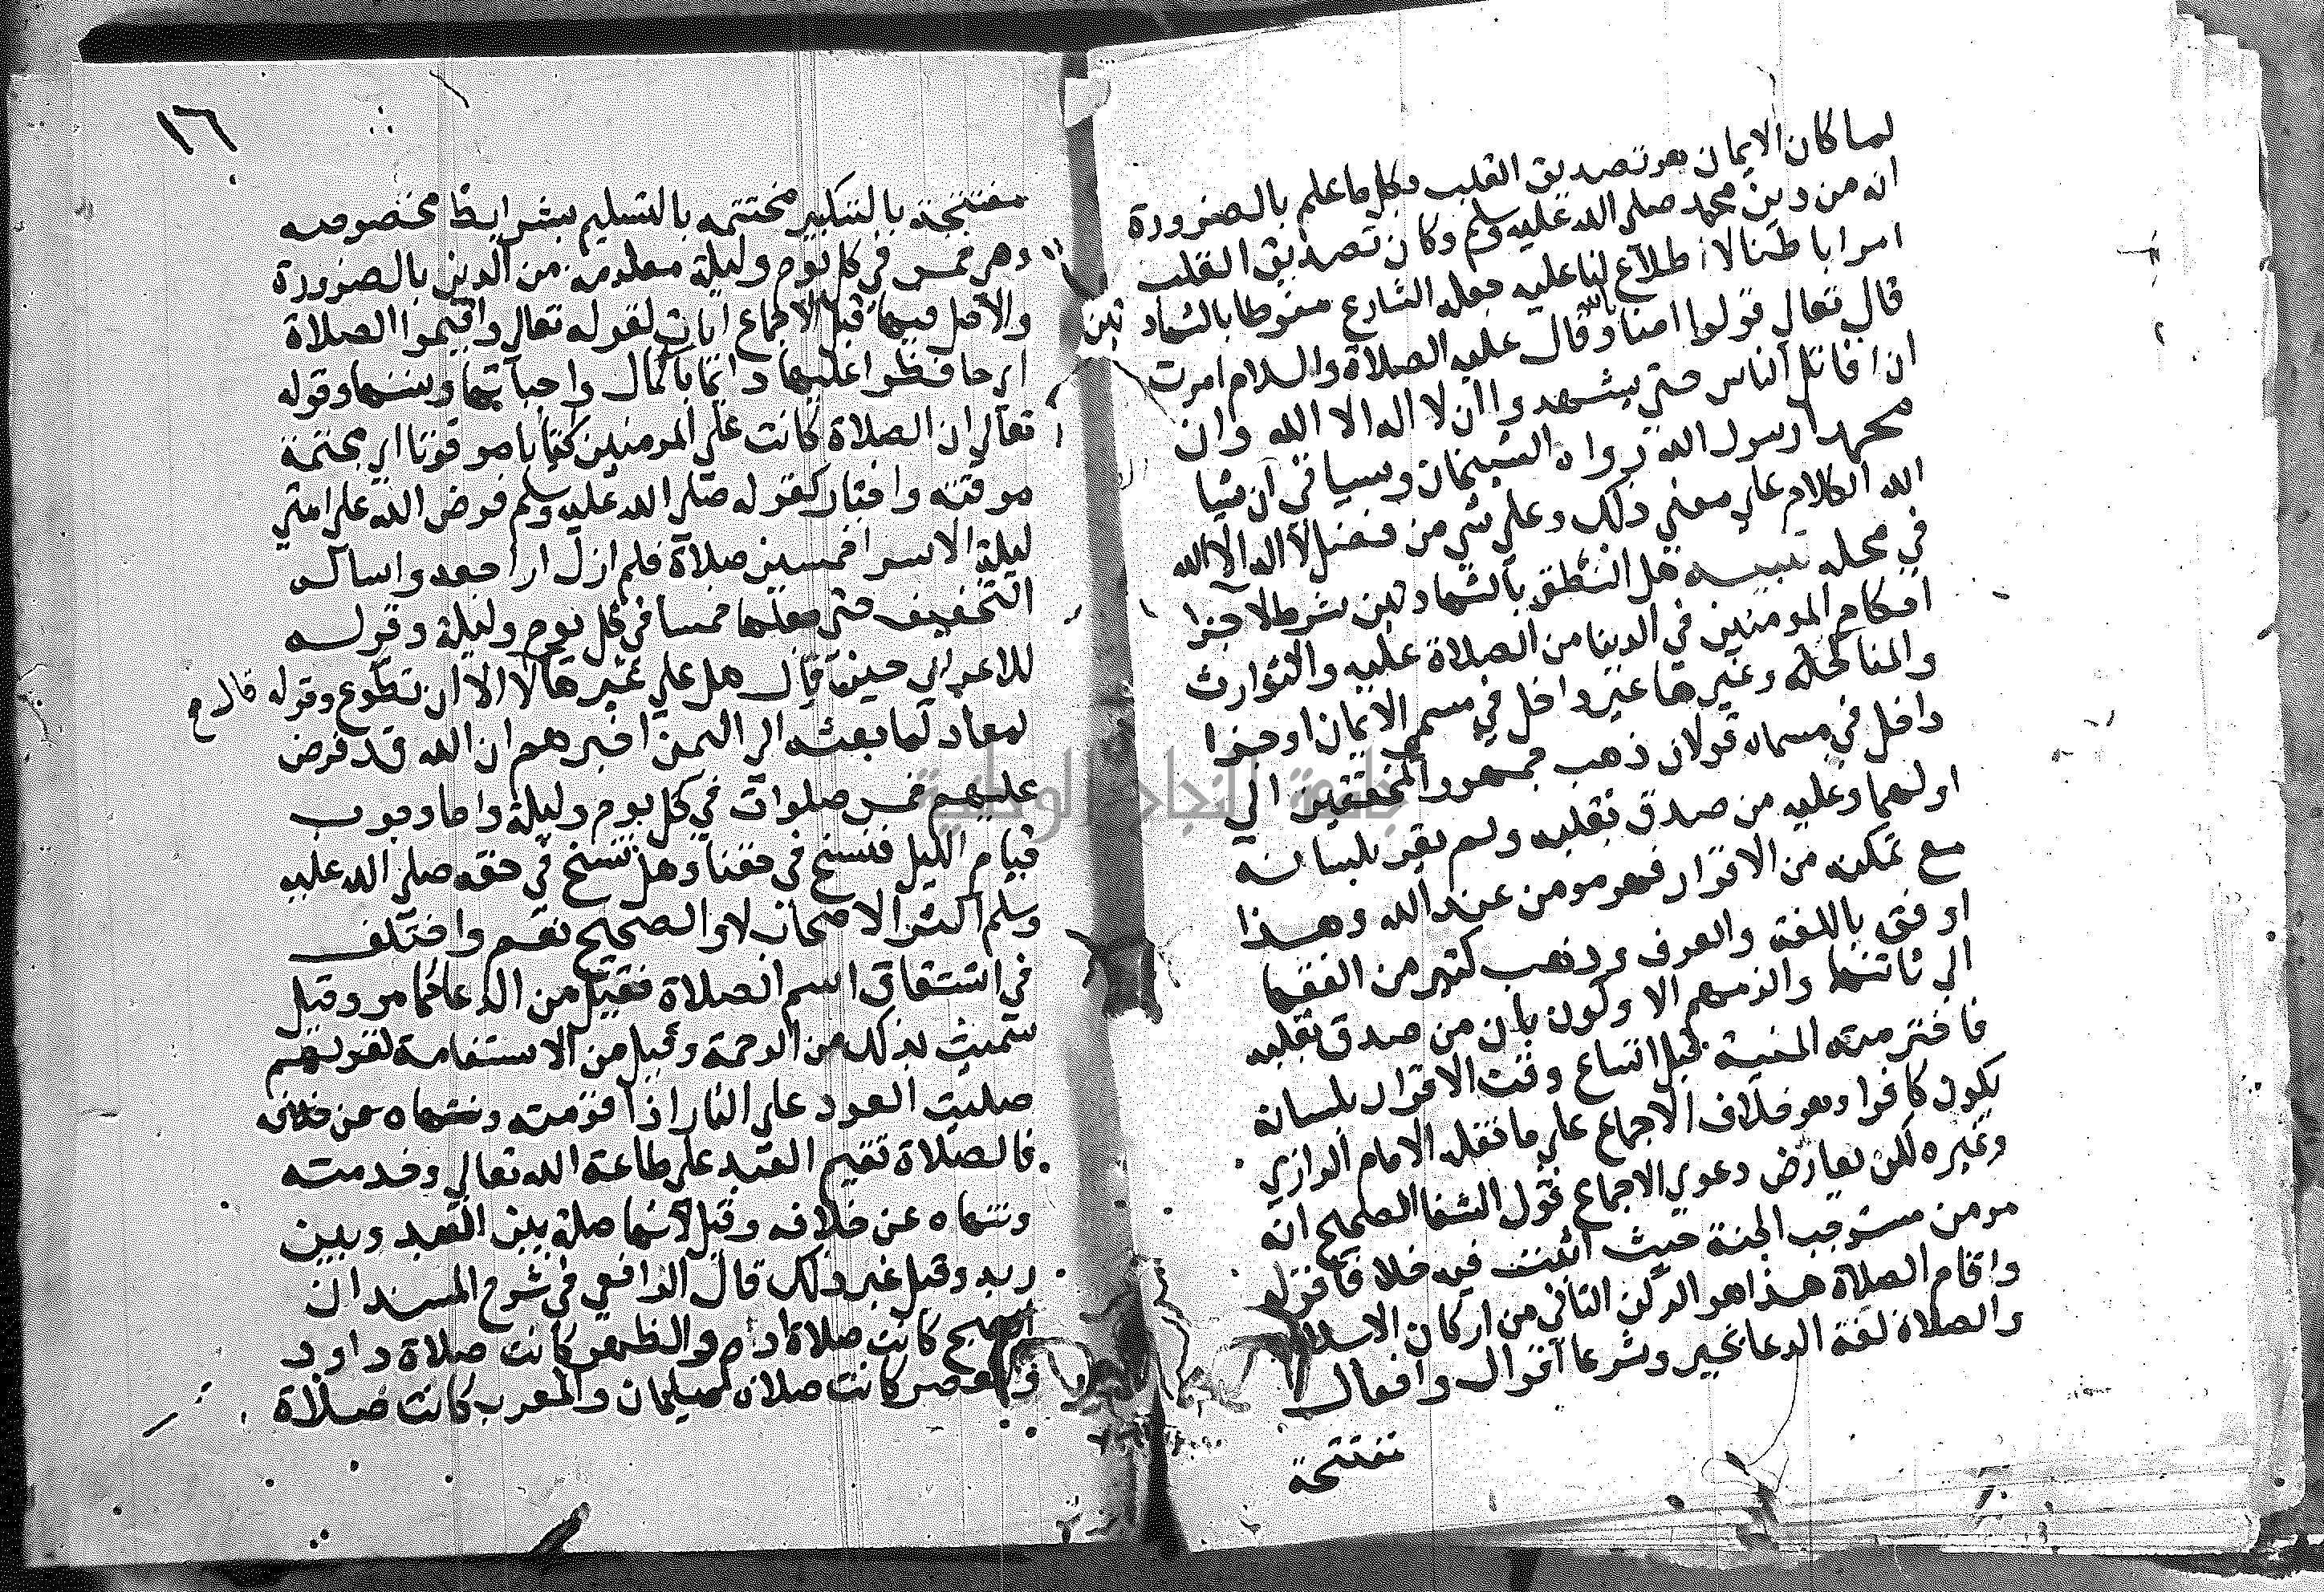 لما كان الايمان هو تصديق القلب بكل ما علم بالضرورة
انه من دين محمد صلى الله عليه وسلم وكان تصديق القلب
امرا باطنا لا اطلاع لنا عليه جعله الشارع منوطا بالشهادتين
قال تعالى قولوا امنا بالله وقال عليه الصلاة والسلام امرت
ان اقاتل الناس حتى يشهدوا ان لا اله الا الله وان
محمدا رسول الله رواه الشيخان وسياتي ان شا
الله الكلام على معنى ذلك وعلى شي من فضل لا اله الا الله
في محله تنبيه هل النطق بالشهادتين شرط لاجرا
احكام المومنين في الدنيا من الصلاة عليه والتوارث
والمناكحة وغيرها غير داخل في مسمى الايمان او جزا
داخل في مسماه قولان ذهب جمهور المحققين الي
اولهما وعليه من صدق بقلبه ولم يقر بلسانه
مع تمكنه من الاقرار فهو مومن عند الله وهذا
اوفق باللغة والعرف وذهب كثير من الفقها
الى ثانيهما والزمهم الاولون بان من صدق بقلبه
فاخترمته المنية قبل اتساع وقت الاقرار بلسانه
يكون كافرا وهو خلاف الاجماع على ما نقله الامام الرازي
وغيره لكن يعارض دعوي الاجماع قول الشفا الصحيح انه
مومن مستوجب الجنة حيث اثبت فيه خلافا قوله
واقام الصلاة هذا هو الركن الثاني من اركان الاسلام
والصلاة لغة الدعا بخير وشرعا اقوال وافعال
مفتتحة
١٦
مفتتحة بالتكبير مختتمه بالتسليم بشرايط مخصوصه
وهي خمس في كل يوم وليلة معلومه من الدين بالضرورة
والاصل فيها قبل الاجماع ايات لقوله تعالي واقيموا الصلاة
اي حافظوا عليها دائما باكمال واجباتها وسننها وقوله
تعالى ان الصلاة كانت على المومنين كتابا موقوتا اي محتمة
موقتة واخبار كقوله صلى الله عليه وسلم فرض الله على امتي
ليلة الاسرا خمسين صلاة فلم ازل اراجعه واساله
التخفيف حتى جعلها خمسا في كل يوم وليلة وقوله
للاعرابي حين قال هل علي غيرها قال لا الا ان تطوع وقوله
لمعاذ لما بعثه الى اليمن اخبرهم ان الله قد فرض
عليهم خمس صلوات في كل يوم وليلة واما وجوب
قيام الليل فنسخ في حقنا وهل نسخ في حقه صلى الله عليه
وسلم اكثر الاصحاب لا والصحيح نعم واختلف
في اشتقاق اسم الصلاة فقيل من الدعا كما مر وقيل
سميت بذلك من الرحمة وقيل من الاستقامة لقولهم
صليت العود على النار اذا قومته وتنهاه عن خلافه
فالصلاة تقيم العبد على طاعة الله تعالي وخدمته
وتنهاه عن خلافه وقيل لانها صلة بين العبد وبين
ربه وقيل غير ذلك قال الرافعي في شرح المسند ان
الصبح كانت صلاة ادم والظهر كانت صلاة داود
والعصر كانت صلاة سليمان والمغرب كانت صلاة
جامعة النجاح الوطنية